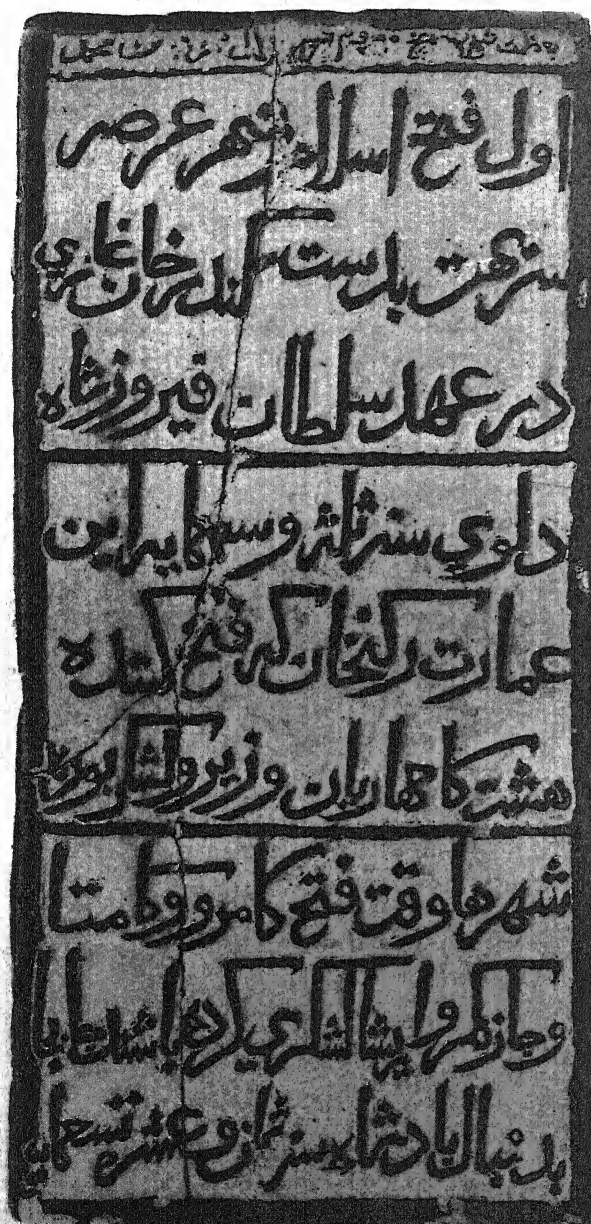 شیخ محمد
اول فتح اسلام شهر عرصه
سریهت بدست سکندر خان غازی
در عهد سلطان فیروز شاه
دلوی سنه ثلثه و سبعمایه این
عمارت رکنخان که فتح کننده
هشت کامهاریان وزیر و لشکر بوده
شهرها وقت فتح کامرو و کامتا
و جازنکر و اریشا لشکری کرده باشند جابجا
بدنبال بادشاه سنه ثمان و عشر و تسعمایه